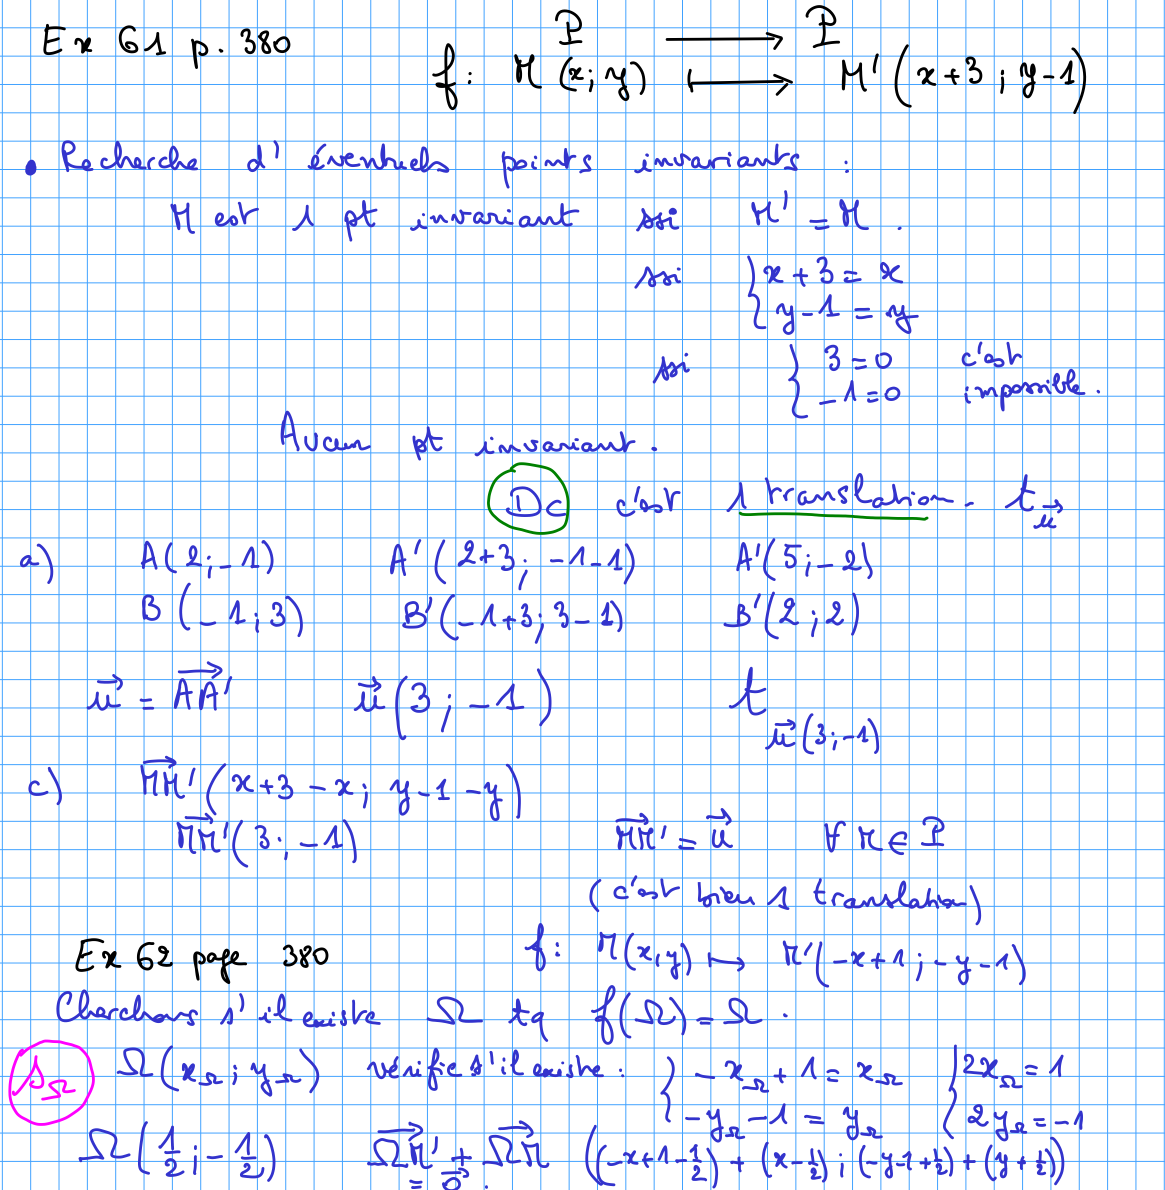 Ex 61 p. 380
P ⟶ P
f : M (x; y) ⟼ M' (x+3 ; y-1)
• Recherche d'éventuels points invariants :
M est 1 pt invariant ssi M' = M .
ssi { x + 3 = x
y - 1 = y
ssi { 3 = 0 c'est
-1 = 0 impossible.
Aucun pt invariant .
Dc c'est 1 translation. t_u⃗
a) A(2 ; -1) A' (2+3 ; -1-1) A'(5 ; -2)
B (-1 ; 3) B'(-1+3 ; 3-1) B'(2 ; 2)
u⃗ = AA'⃗ u⃗ (3 ; -1) t_u⃗(3 ; -1)
c) MM'⃗ (x+3-x ; y-1-y)
MM'⃗ (3 ; -1) MM'⃗ = u⃗ ∀ M ∈ P
(c'est bien 1 translation)
Ex 62 page 380 f : M(x,y) ⟼ M'(-x+1 ; -y-1)
Cherchons s'il existe Ω tq f(Ω) = Ω .
S_Ω Ω(x_Ω ; y_Ω) vérifie s'il existe : { -x_Ω + 1 = x_Ω { 2x_Ω = 1
-y_Ω - 1 = y_Ω 2y_Ω = -1
Ω(1/2 ; -1/2) ΩM'⃗ + ΩM⃗ ((-x+1-1/2) + (x-1/2) ; (-y-1+1/2) + (y+1/2))
= 0⃗ .